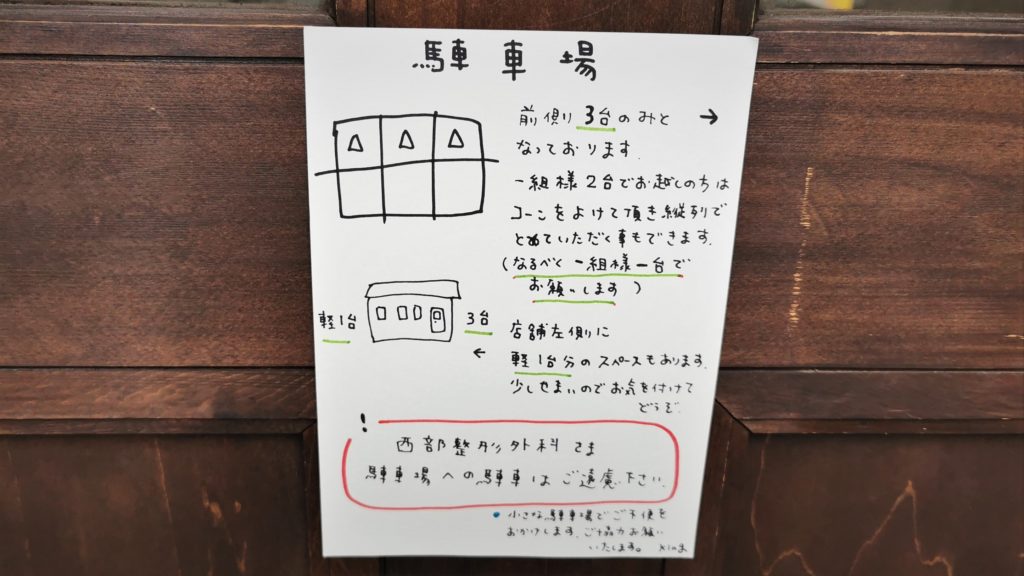 駐車場
前側り 3台のみと →
なっております.
一組様2台でお越しのちは
コーンをよけて頂き縦列で
とめていただく事もできます.
(なるべく一組様一台で
お願いします)
軽1台
3台
←
店舗左側に
軽1台分のスペースもあります.
少しせまいのでお気を付けて
どうぞ.
!
西部整形外科さま
駐車場への駐車はご遠慮下さい.
• 小さな駐車場でご不便を
おかけします. ご協力お願い
いたします。